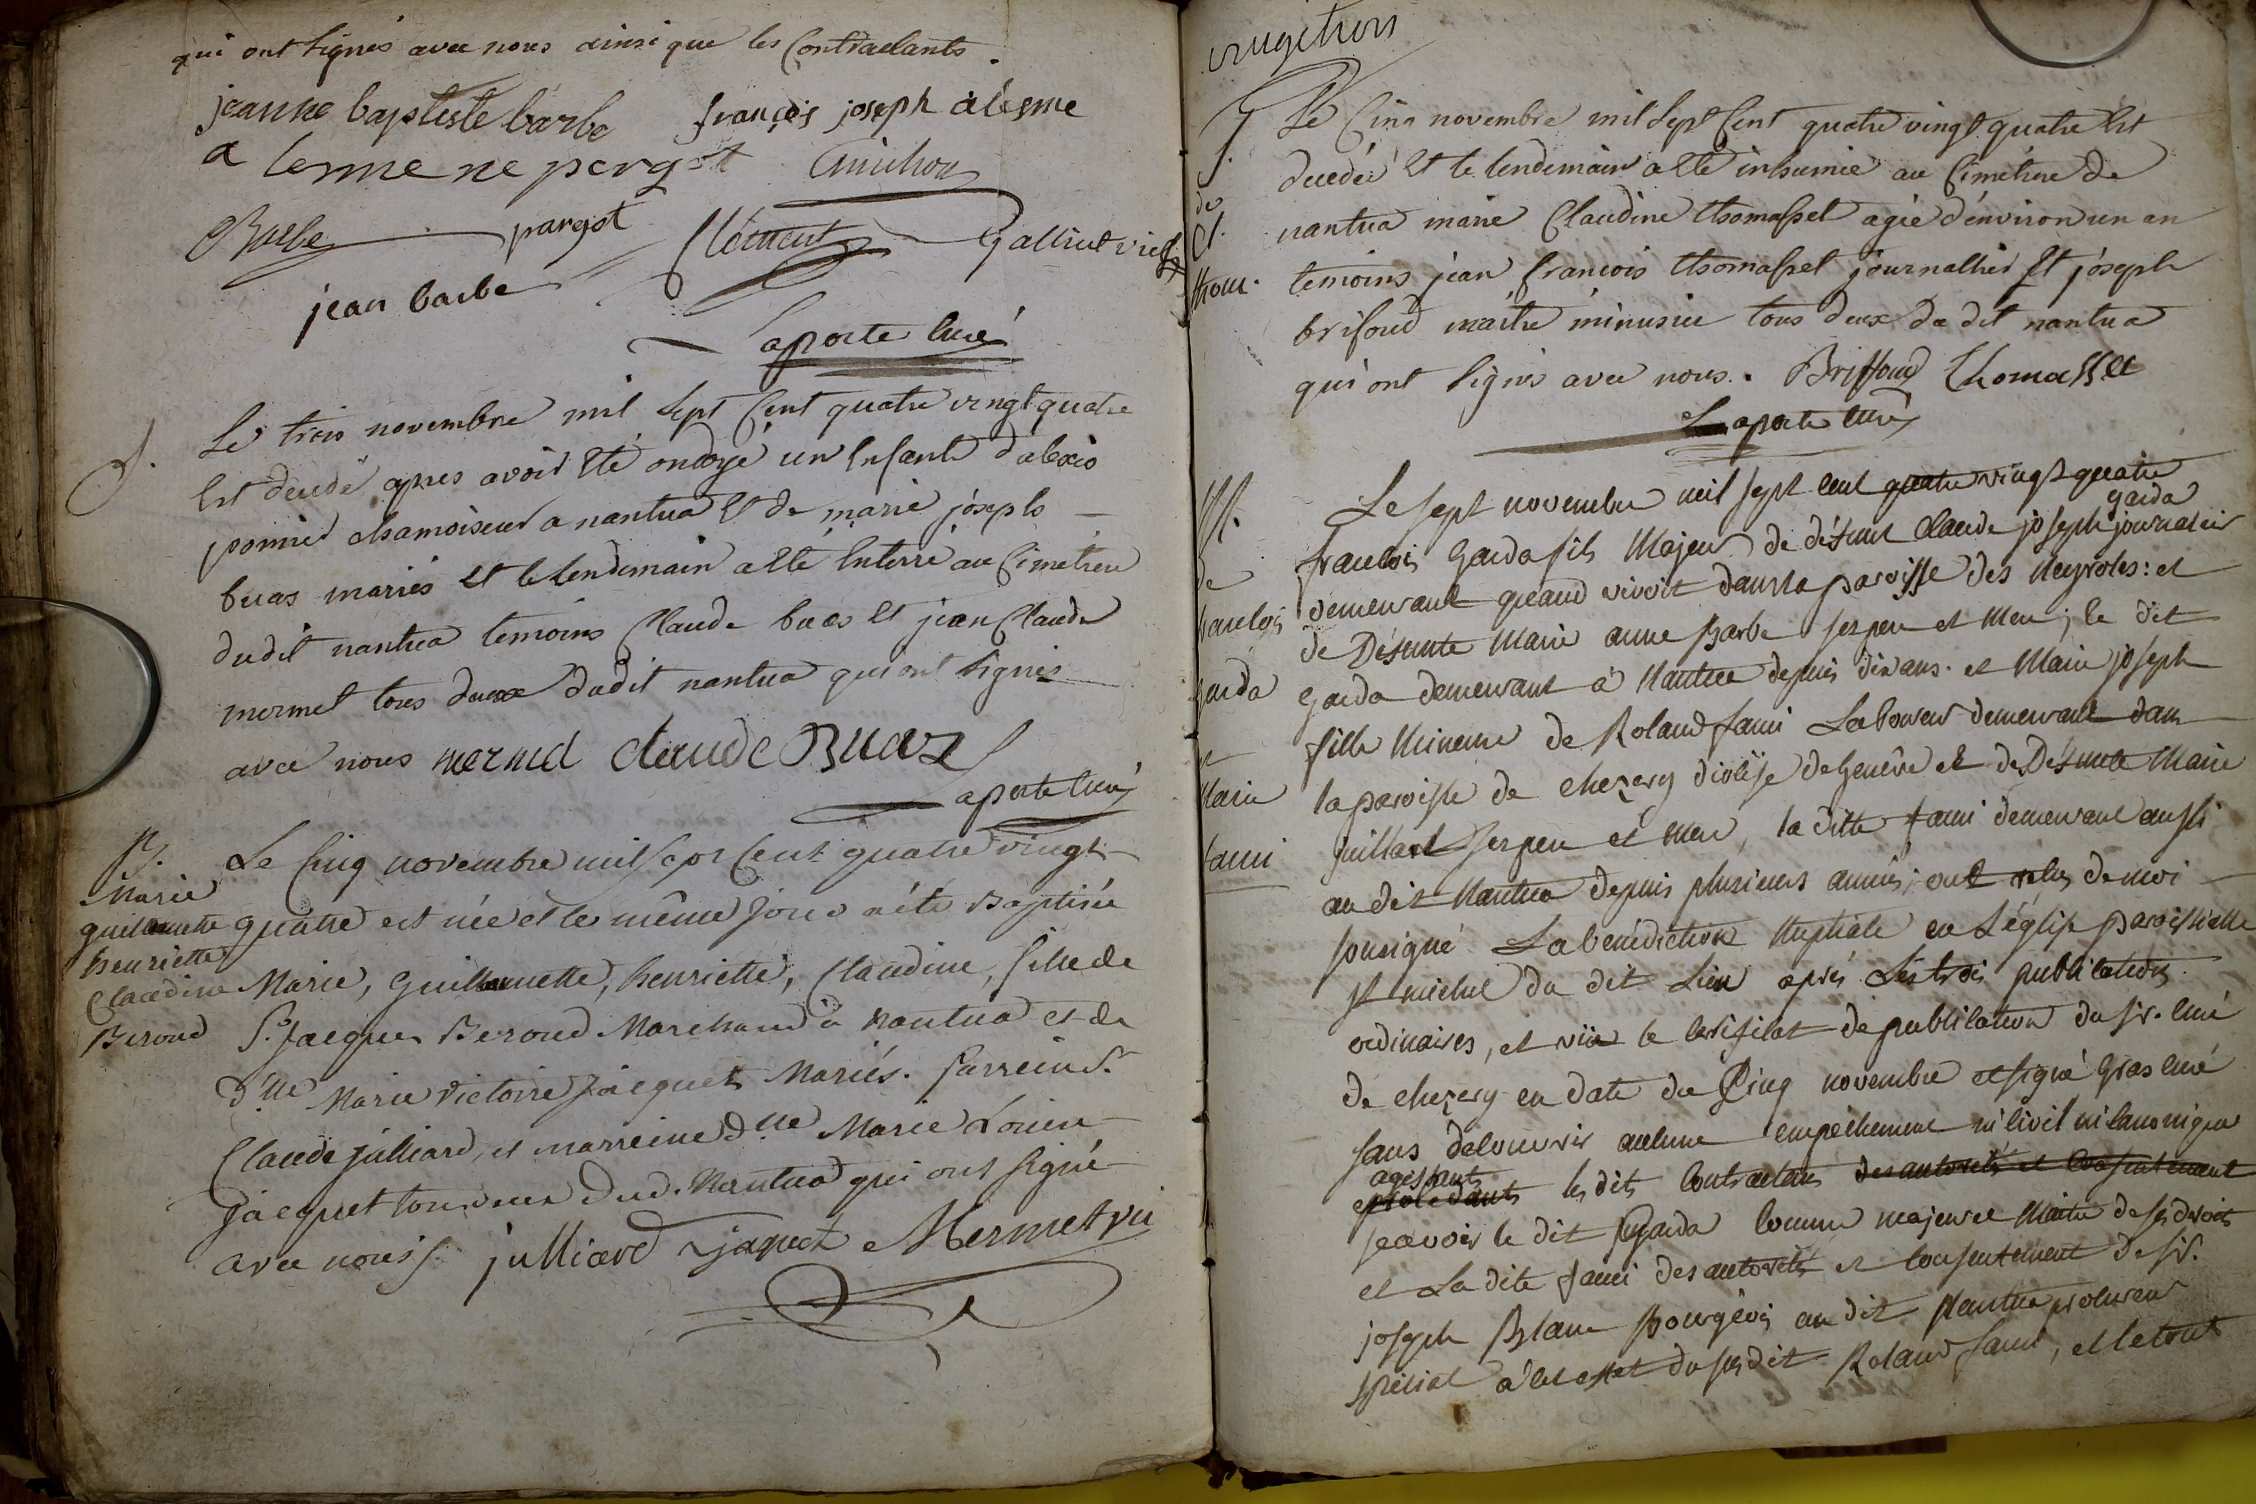 qui ont signés avec nous ainsi que les Contractants.
jeanne baptiste barbe françois joseph alesme
a lesme ne pergot
Barbe pargot Clément
jean barbe
Laporte Curé
S.
Le trois novembre mil sept Cent quatre vingt quatre
Est decedé apres avoir Eté ondoyé un Enfant d'alexis
ponnier chamoiseur a nantua Et de marie joseph
buas mariés Et le lendemain a eté Enterré au Cimetiere
dudit nantua temoins Claude buas Et jean Claude
mermet tous deux dudit nantua qui ont signés
avec nous mermet Claude Buaz
Laporte Curé
B.
Marie
guillaumette
henriette
Claudine
Beroud
Le Cinq novembre mil sept Cent quatre vingt
quatre est née et le même jour a été Baptisée
Marie, Guillaumette, henriette, Claudine, fille de
Sr. Jacques Beroud Marchand à Nantua et de
dlle Marie Victoire Jacquet Mariés. Parrein Sr.
Claude julliard, et marreine dlle Marie Louise
jacquet tous deux dud. Nantua qui ont signé
avec nous julliard jaquet Mermet vic
vingt trois
S.
de
Cl.
thom.
Le Cinq novembre mil sept Cent quatre vingt quatre Est
decedée Et le lendemain a eté inhumée au Cimetiere de
nantua marie Claudine thomasset agée d'environ un an
temoins jean françois thomasset journallier Et joseph
brifoud maitre menusier tous deux du dit nantua
qui ont signés avec nous. Briffoud Thomasset
Laporte Curé
M.
de
francois
gaida
et
Marie
fami
Le sept novembre mil sept cent quatre vingt quatre
gaida
francois Gaida fils Majeur de défunt Claude joseph journalier
demeurant quand vivoit dans la paroisse des Neyroles: et
de Défunte Marie anne Barbe ses pere et Mere; le dit
Gaida demeurant à Nantua depuis dix ans. et Marie joseph
fille Mineure de Roland fami Laboureur demeurant dans
la paroisse de chezery diocèse de Genêve et de Défunte Marie
juillard ses pere et Mere, la ditte fami demeurant aussi
au dit Nantua depuis plusieurs années; ont reçu de moi
sousigné La bénédiction Nuptiale en L'église paroissielle
St michel du dit Lieu après Les trois publications
ordinaires, et vûe le certificat de publication du Sr. curé
de chezery en date du Cinq novembre et signé Gras curé
sans découvrir aucune empechement ni civil ni canonique
agissants
procedants les dits Contractans des autorité et consentement
scavoir le dit Gaida comme majeur et Maitre de ses droits
et La dite fami des autorités et consentement de Sr.
joseph Blanc Bourgeois au dit Nantua procureur
special à cet effet du susdit Roland fami, et le tout